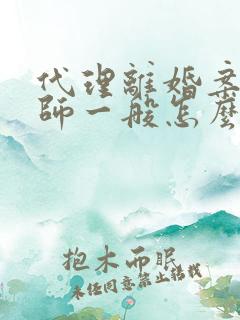 代理離婚案
師一般怎麼
抱木而眠
未任同意禁止轉載